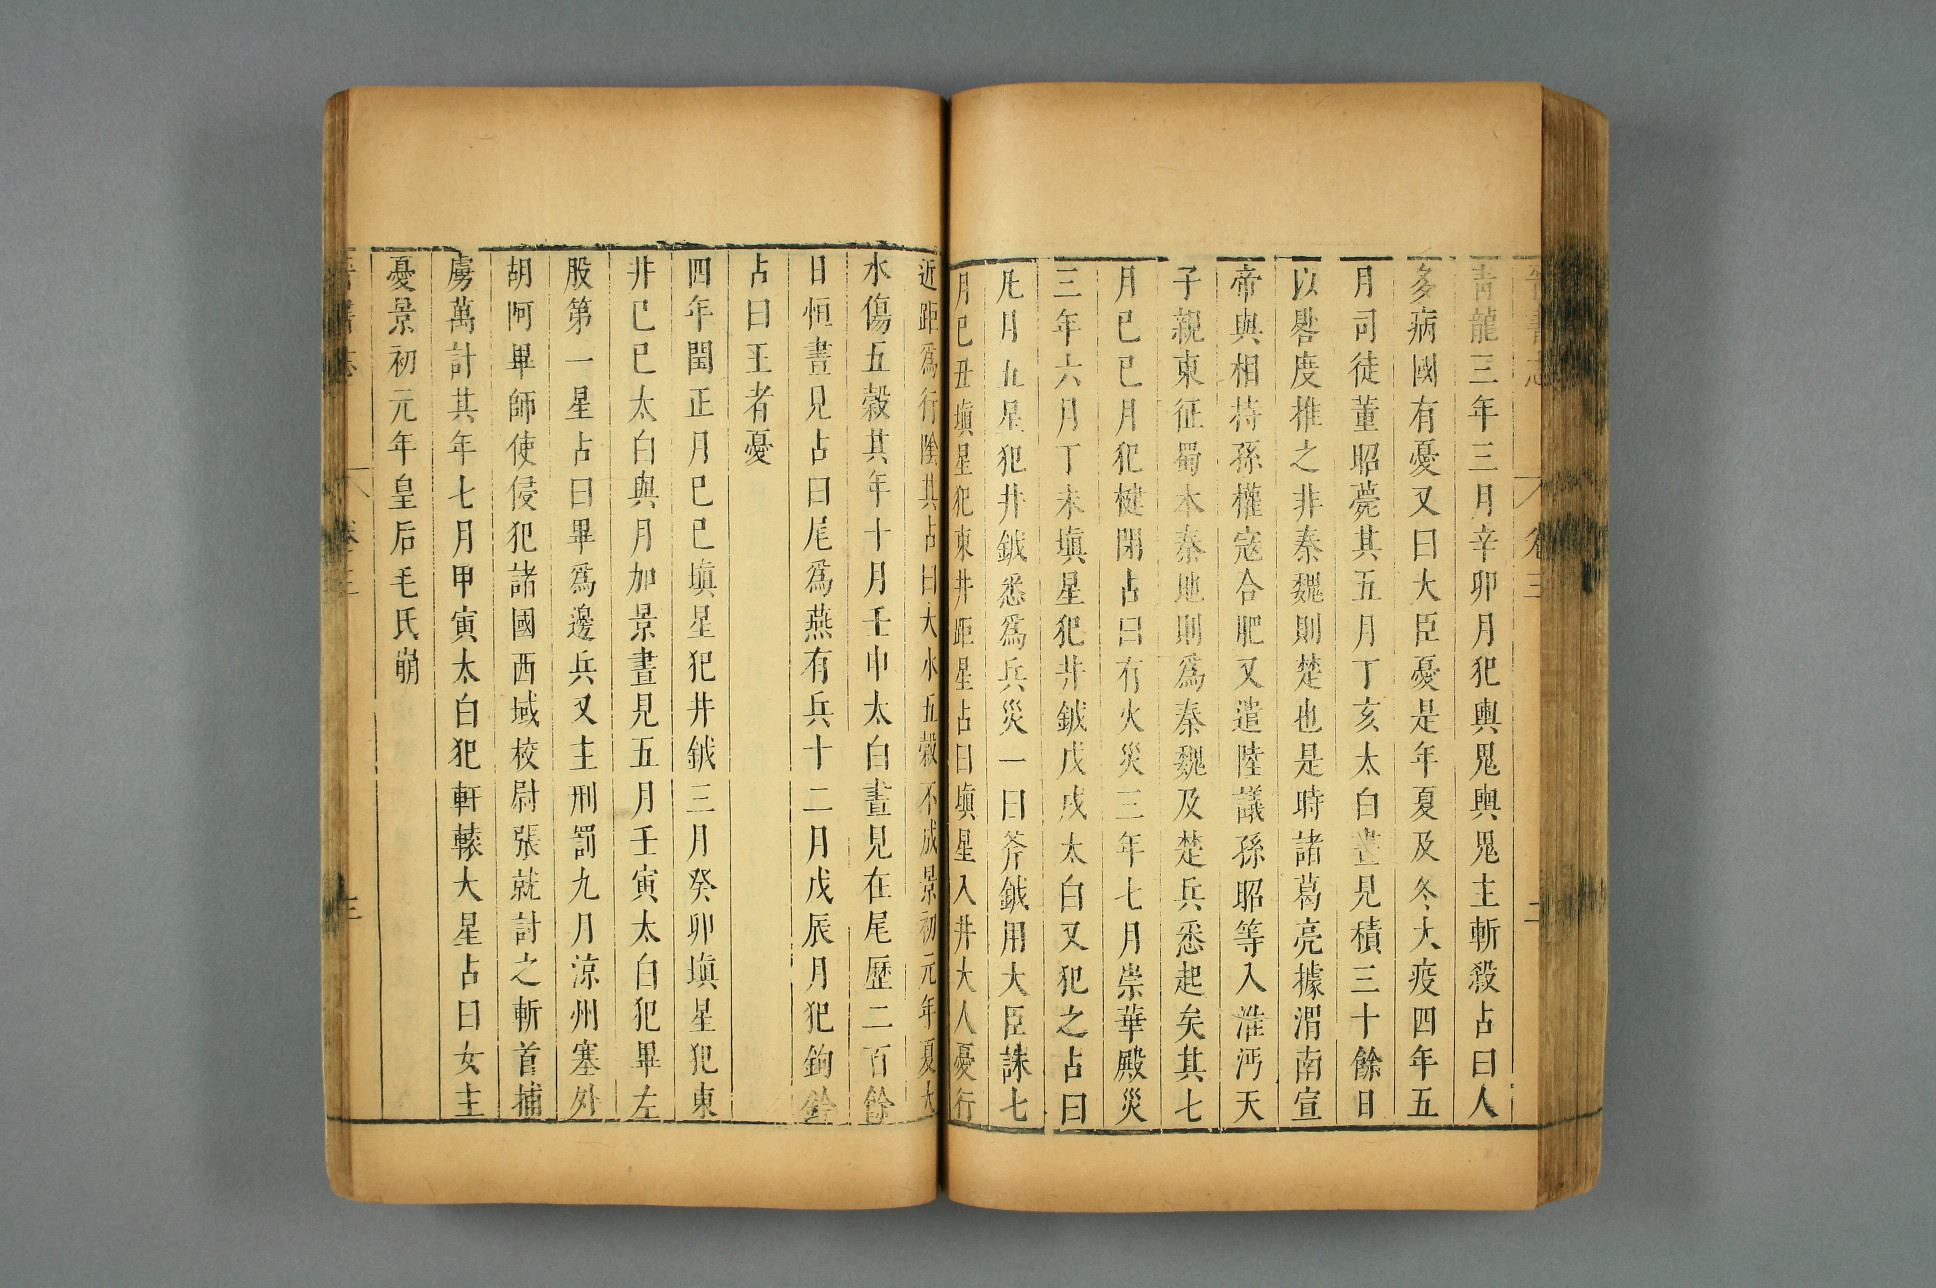 晉書志 卷三 二
青龍三年三月辛卯月犯輿鬼輿鬼主斬殺占曰人
多病國有憂又曰大臣憂是年夏及冬大疫四年五
月司徒董昭薨其五月丁亥太白晝見積三十餘日
以晷度推之非秦魏則楚也是時諸葛亮據渭南宣
帝與相持孫權寇合肥又遣陸議孫昭等入淮沔天
子親東征蜀本秦地則爲秦魏及楚兵悉起矣其七
月己巳月犯楗閉占曰有火災三年七月崇華殿災
三年六月丁未塡星犯井鉞戊戌太白又犯之占曰
凡月五星犯井鉞悉爲兵災一曰斧鉞用大臣誅七
月己丑塡星犯東井距星占曰塡星入井大人憂行
近距爲行陰其占曰大水五穀不成景初元年夏大
水傷五穀其年十月壬申太白晝見在尾歷二百餘
日恒晝見占曰尾爲燕有兵十二月戊辰月犯鉤鈐
占曰王者憂
四年閏正月己巳塡星犯井鉞三月癸卯塡星犯東
井己巳太白與月加景晝見五月壬寅太白犯畢左
股第一星占曰畢爲邊兵又主刑罰九月涼州塞外
胡阿畢師使侵犯諸國西域校尉張就討之斬首捕
虜萬計其年七月甲寅太白犯軒轅大星占曰女主
憂景初元年皇后毛氏崩
晉書志 卷三 三